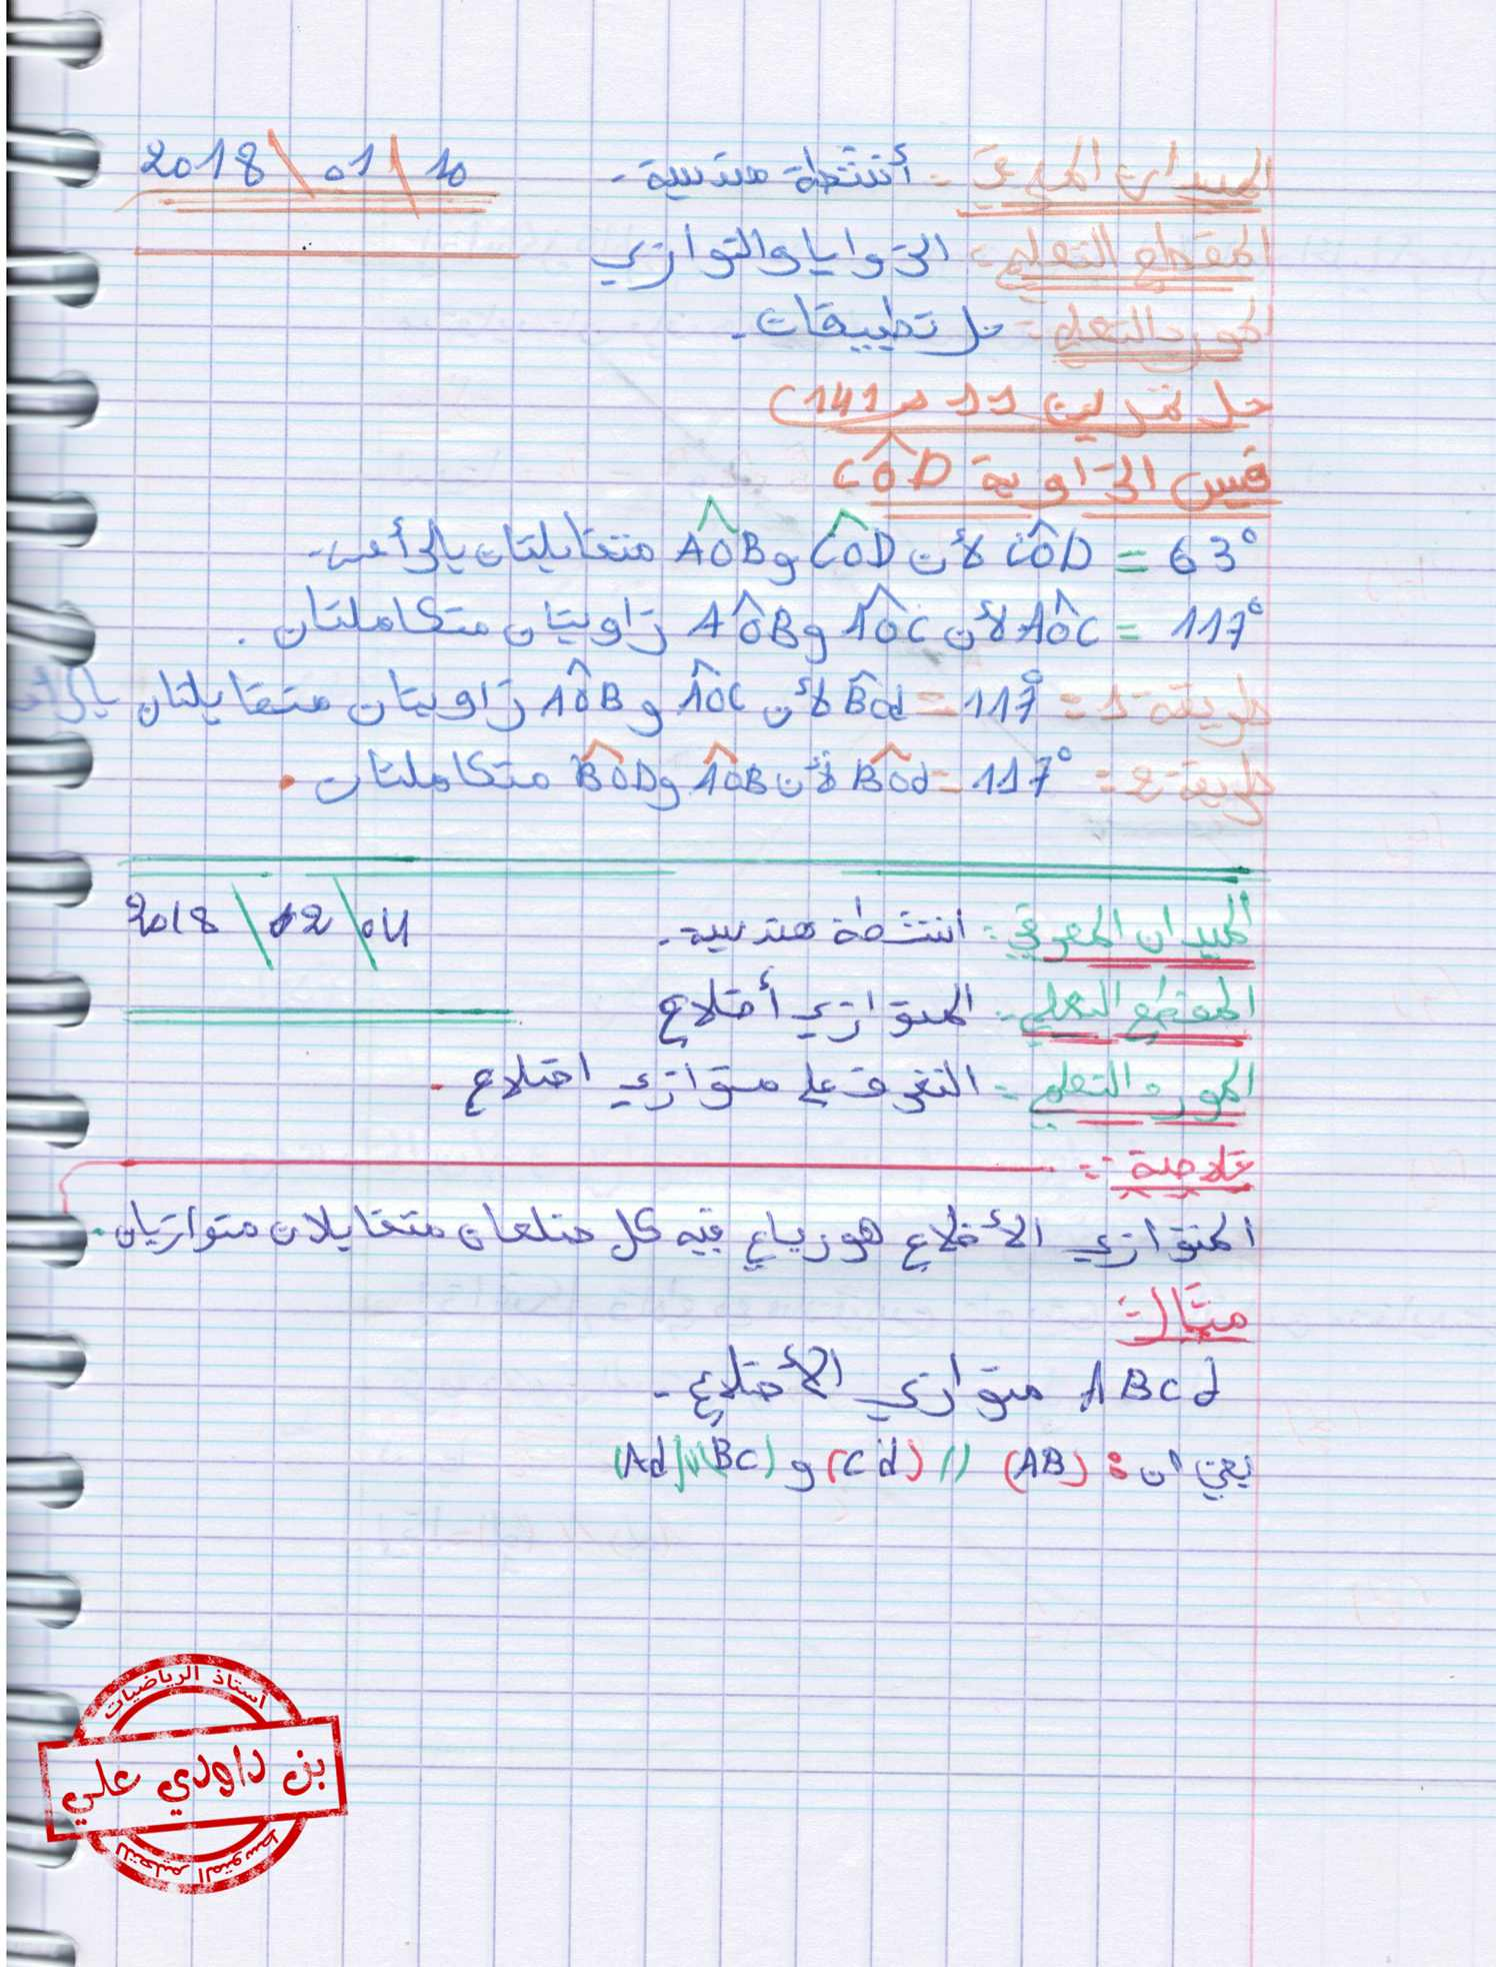 الميدان المعرفي:- أنشطة هندسية. 2018\01\10
المقطع التعلمي:- الزوايا والتوازي
المورد التعلمي:- حل تطبيقات.
حل تمرين 11 ص 141)
قيس الزاوية CÔD
CÔD = 63° لأن CÔD و AÔB متقابلتان بالرأس.
AÔC = 117° لأن AÔC و AÔB زاويتان متكاملتان.
طريقة 1 = BÔd = 117° لأن AÔC و AÔB زاويتان متقابلتان بالرأس
طريقة 2 = BÔd = 117° لأن AÔB و BÔD متكاملتان.
الميدان المعرفي:- انشطة هندسية. 2018 \ 12 \ 04
المقطع التعلمي:- المتوازي أضلاع
المورد التعلمي:- التعرف على متوازي اضلاع.
خلاصة:-
المتوازي الأضلاع هو رباعي فيه كل ضلعان متقابلان متوازيان.
مثال:
ABCd متوازي الأضلاع.
يعني ان: (AB) // (Cd) و (BC)//(Ad)
أستاذ الرياضيات
بن داودي علي
للتعليم المتوسط